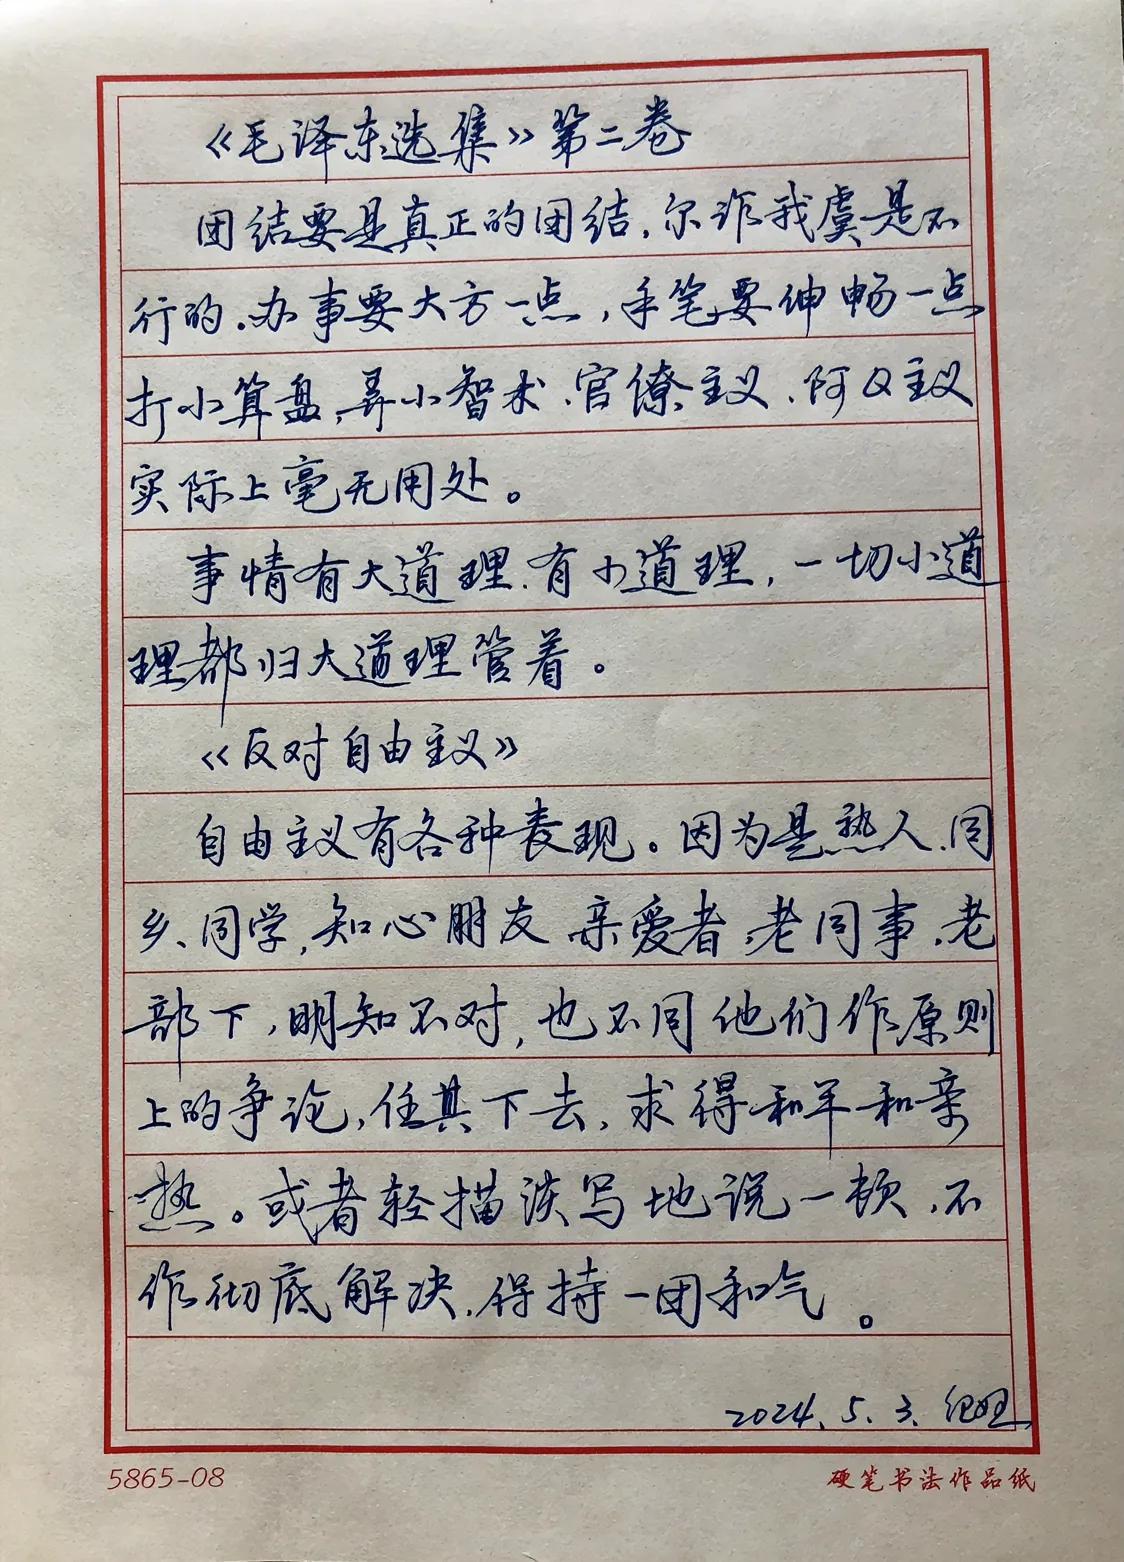 《毛泽东选集》第二卷
团结要是真正的团结，尔诈我虞是不
行的。办事要大方一点，手笔要伸畅一点
打小算盘，弄小智术、官僚主义、阿Q主义
实际上毫无用处。
事情有大道理、有小道理，一切小道
理都归大道理管着。
《反对自由主义》
自由主义有各种表现。因为是熟人、同
乡、同学，知心朋友 亲爱者，老同事，老
部下，明知不对，也不同他们作原则
上的争论，任其下去，求得和平和亲
热。或者轻描淡写地说一顿，不
作彻底解决，保持一团和气。
2024.5.3.
5865-08
硬笔书法作品纸